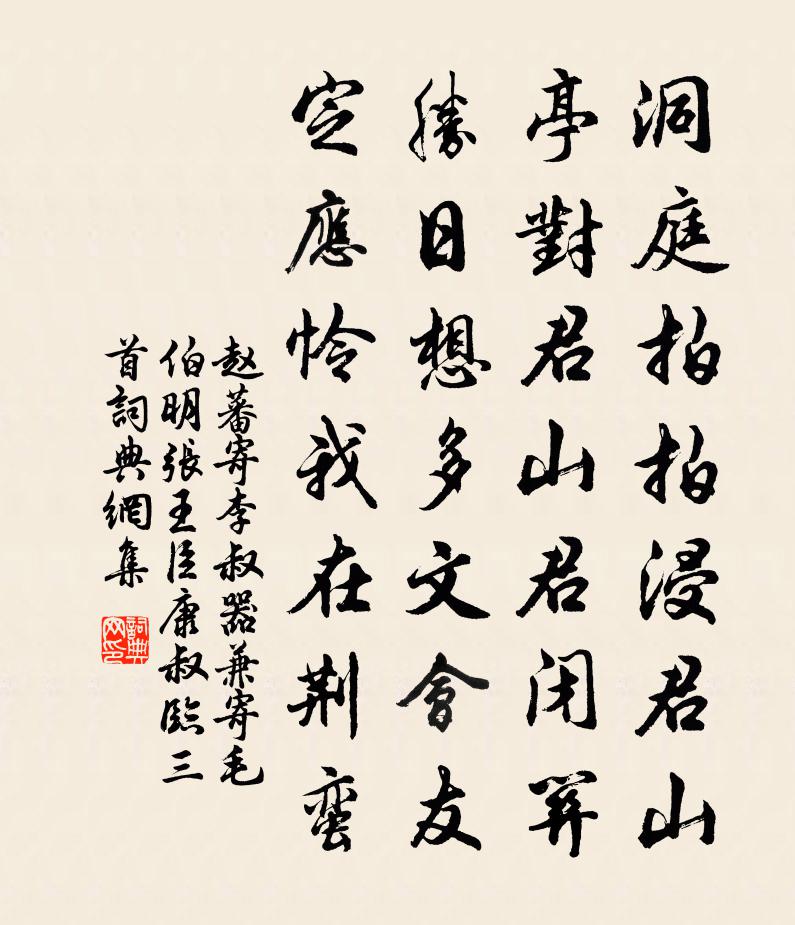 洞庭拍拍浸君山
亭對君山君閉關
勝日想多文會友
定應憐我在荆蛮
赵蕃寄李叔器兼寄毛
伯明張王臣康叔臨三
首詞典網集
詞典網印